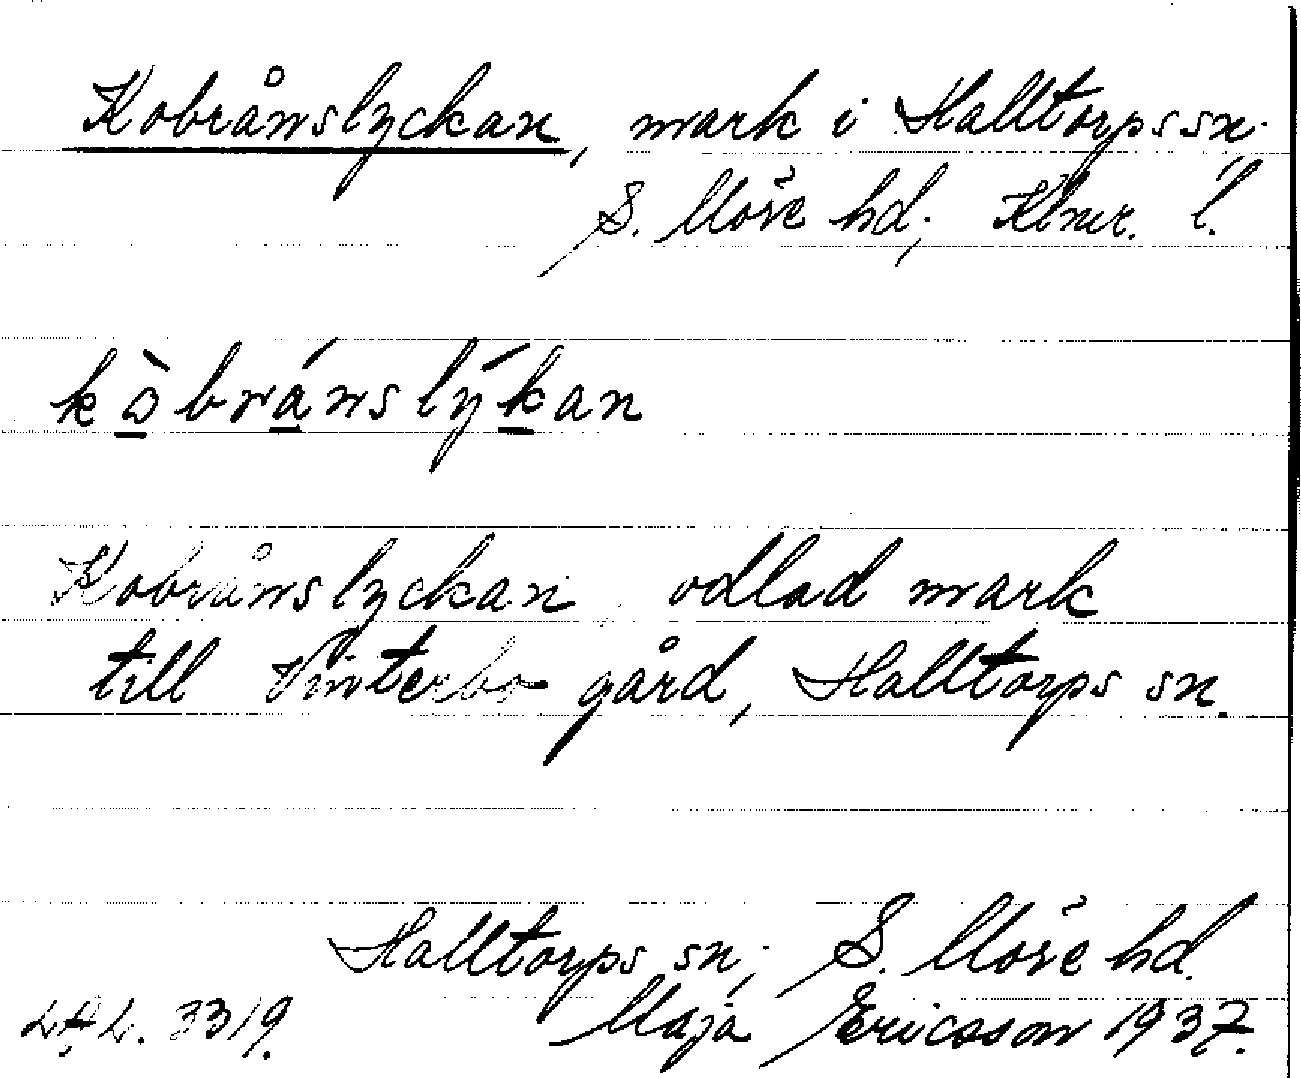 Kobrånslyckan, mark i Halltorps sn.
S. Möre hd; Klmr. l.
kòbránslýkan
Kobrånslyckan, odlad mark
till Vinterbo gård, Halltorps sn.
Halltorps sn; S. Möre hd.
L.A.L. 3319. Maja Ericsson 1937.